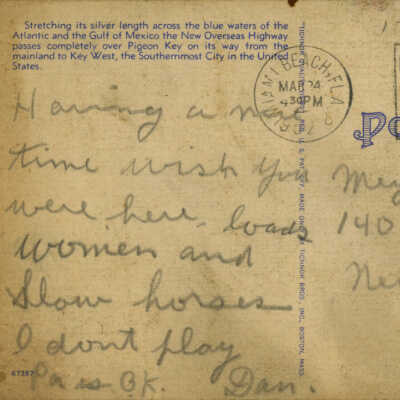 Stretching its silver length across the blue waters of the
Atlantic and the Gulf of Mexico the New Overseas Highway
passes completely over Pigeon Key on its way from the
mainland to Key West, the Southernmost City in the United
States.
MIAMI BEACH, FLA.
MAR 24
4 30 PM
Having a nice
time wish you
were here. loads
women and
slow horses
I dont play
Pa is OK. Dan.
67367
TICHNOR BROS., INC., BOSTON, MASS.
Po
140